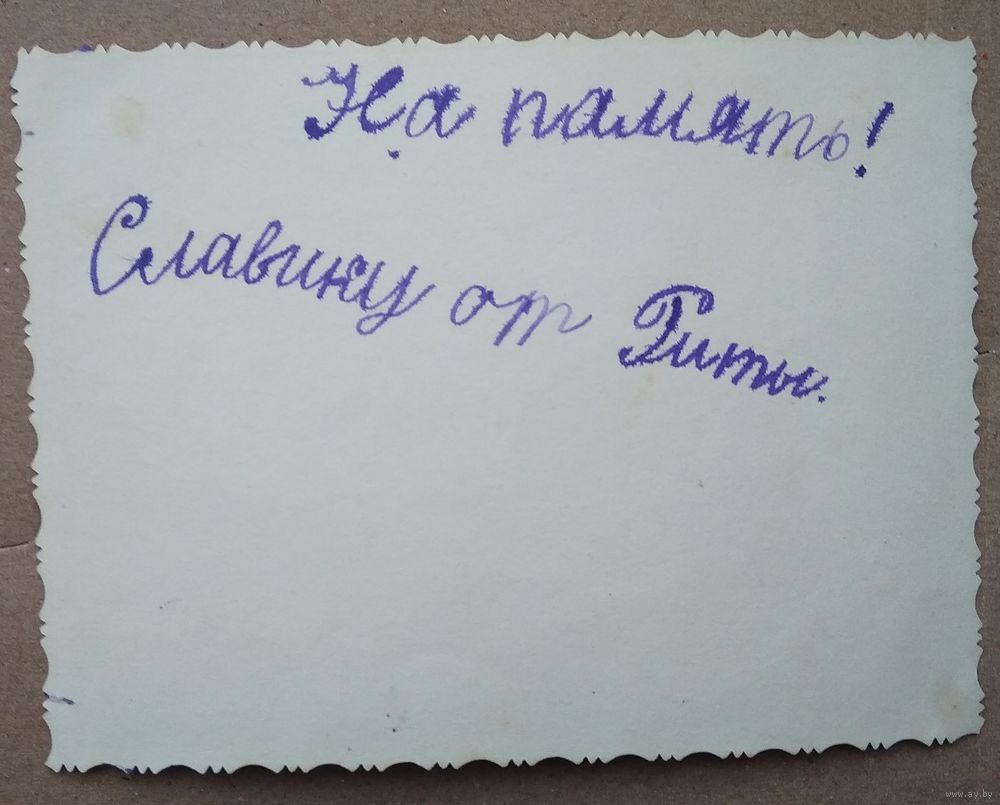 На память!
Славику от Риты.
www.ay.by